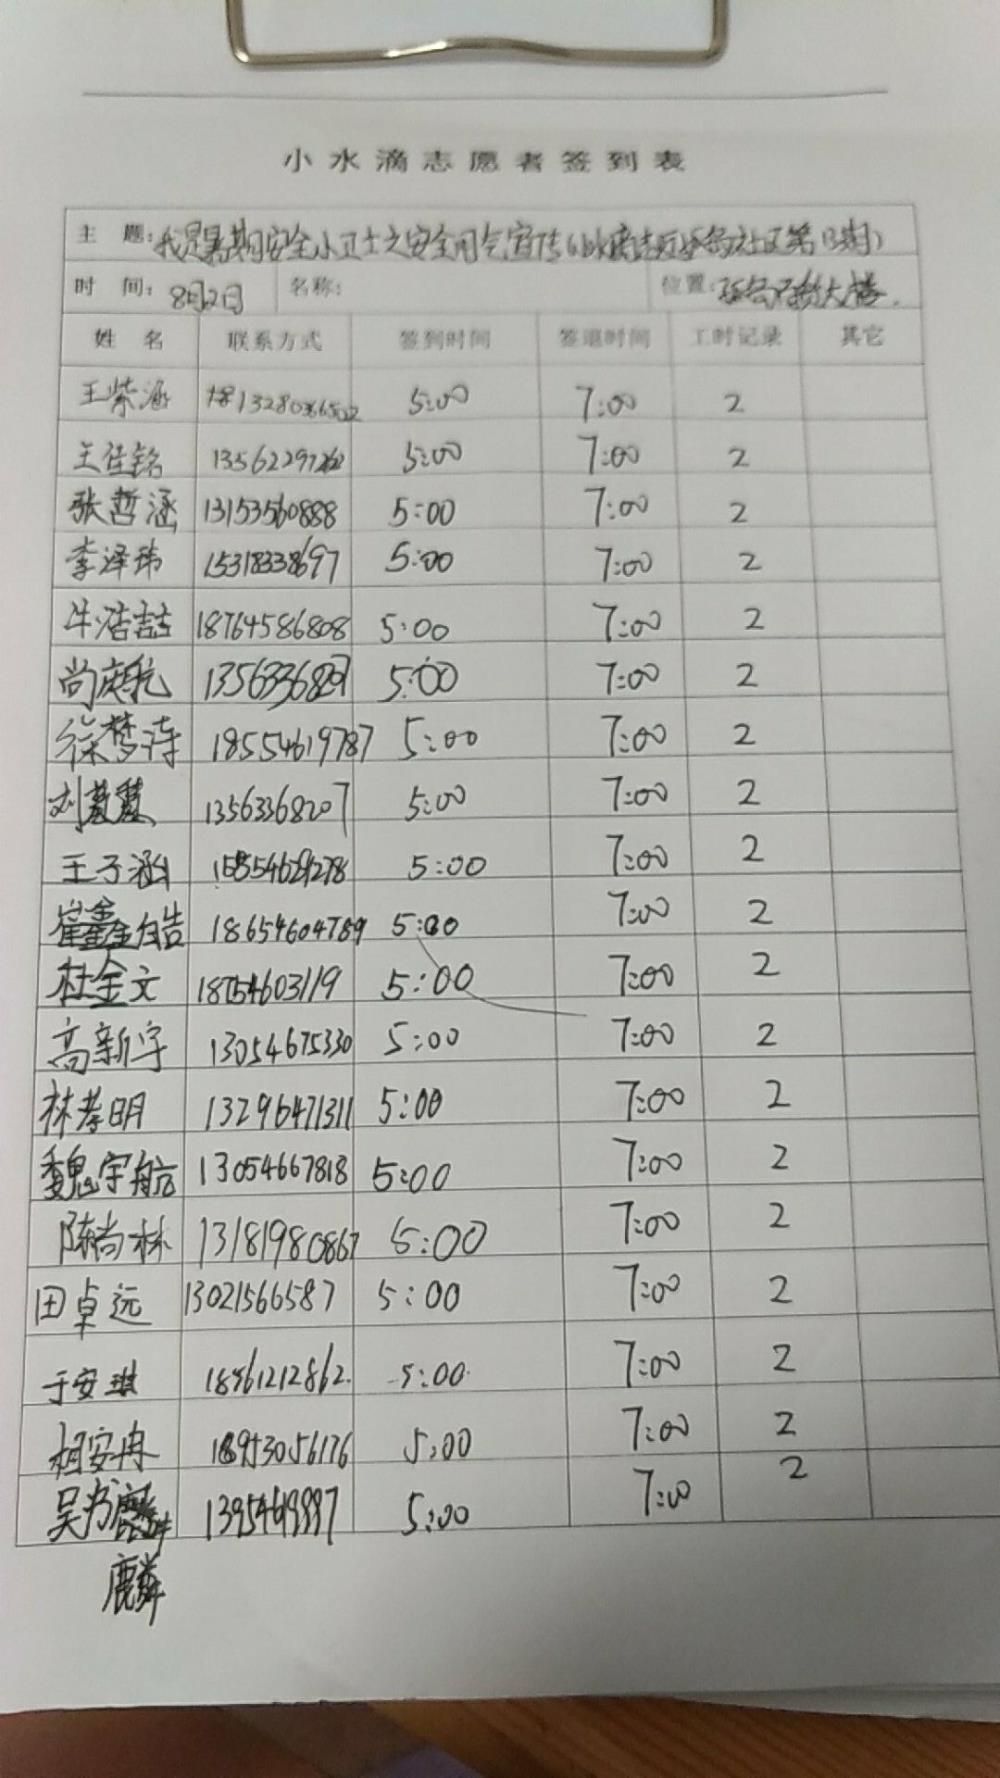 小水滴志愿者签到表
主 题: 我是暑期安全小卫士之安全用气宣传
时 间: 8月2日 名称: 位置:
姓 名 联系方式 签到时间 签退时间 工时记录 其它
王紫涵 5:00 7:00 2
王佳铭 5:00 7:00 2
张哲涵 13153560888 5:00 7:00 2
李泽玮 15318338697 5:00 7:00 2
牛浩喆 18764586808 5:00 7:00 2
尚庭航 5:00 7:00 2
徐梦涛 18554619787 5:00 7:00 2
刘慧慧 13563368207 5:00 7:00 2
王子涵 5:00 7:00 2
崔鑫皓 18654604789 5:00 7:00 2
杜金文 18754603119 5:00 7:00 2
高新宇 13054675330 5:00 7:00 2
林孝明 13296471311 5:00 7:00 2
魏宇航 13054667818 5:00 7:00 2
陈尚林 13181980867 5:00 7:00 2
田卓远 13021566587 5:00 7:00 2
于安琪 18561212862 5:00 7:00 2
相安冉 18953056176 5:00 7:00 2
吴书 5:00 7:00 2
麟